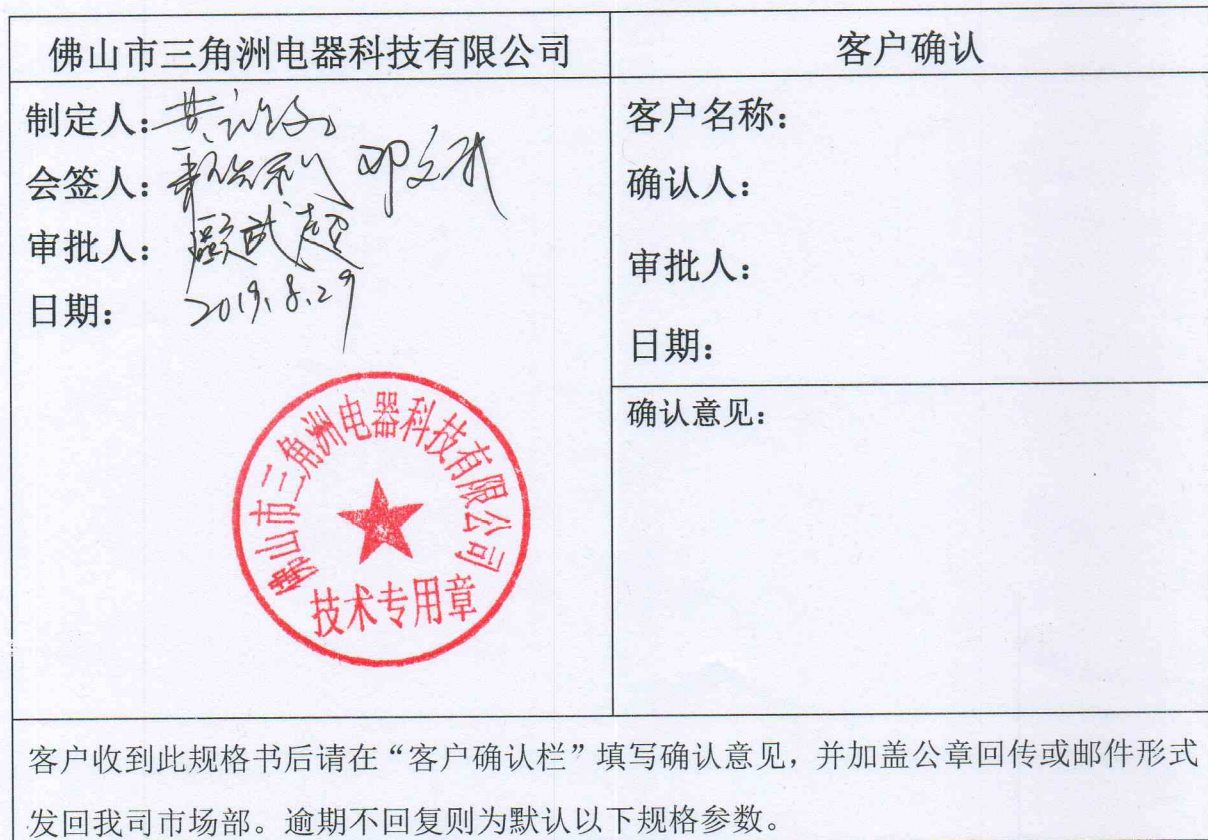 佛山市三角洲电器科技有限公司
客户确认
制定人：
会签人：邓文
审批人：武超
日期：2019.8.29
佛山市三角洲电器科技有限公司
技术专用章
客户名称：
确认人：
审批人：
日期：
确认意见：
客户收到此规格书后请在“客户确认栏”填写确认意见，并加盖公章回传或邮件形式
发回我司市场部。逾期不回复则为默认以下规格参数。